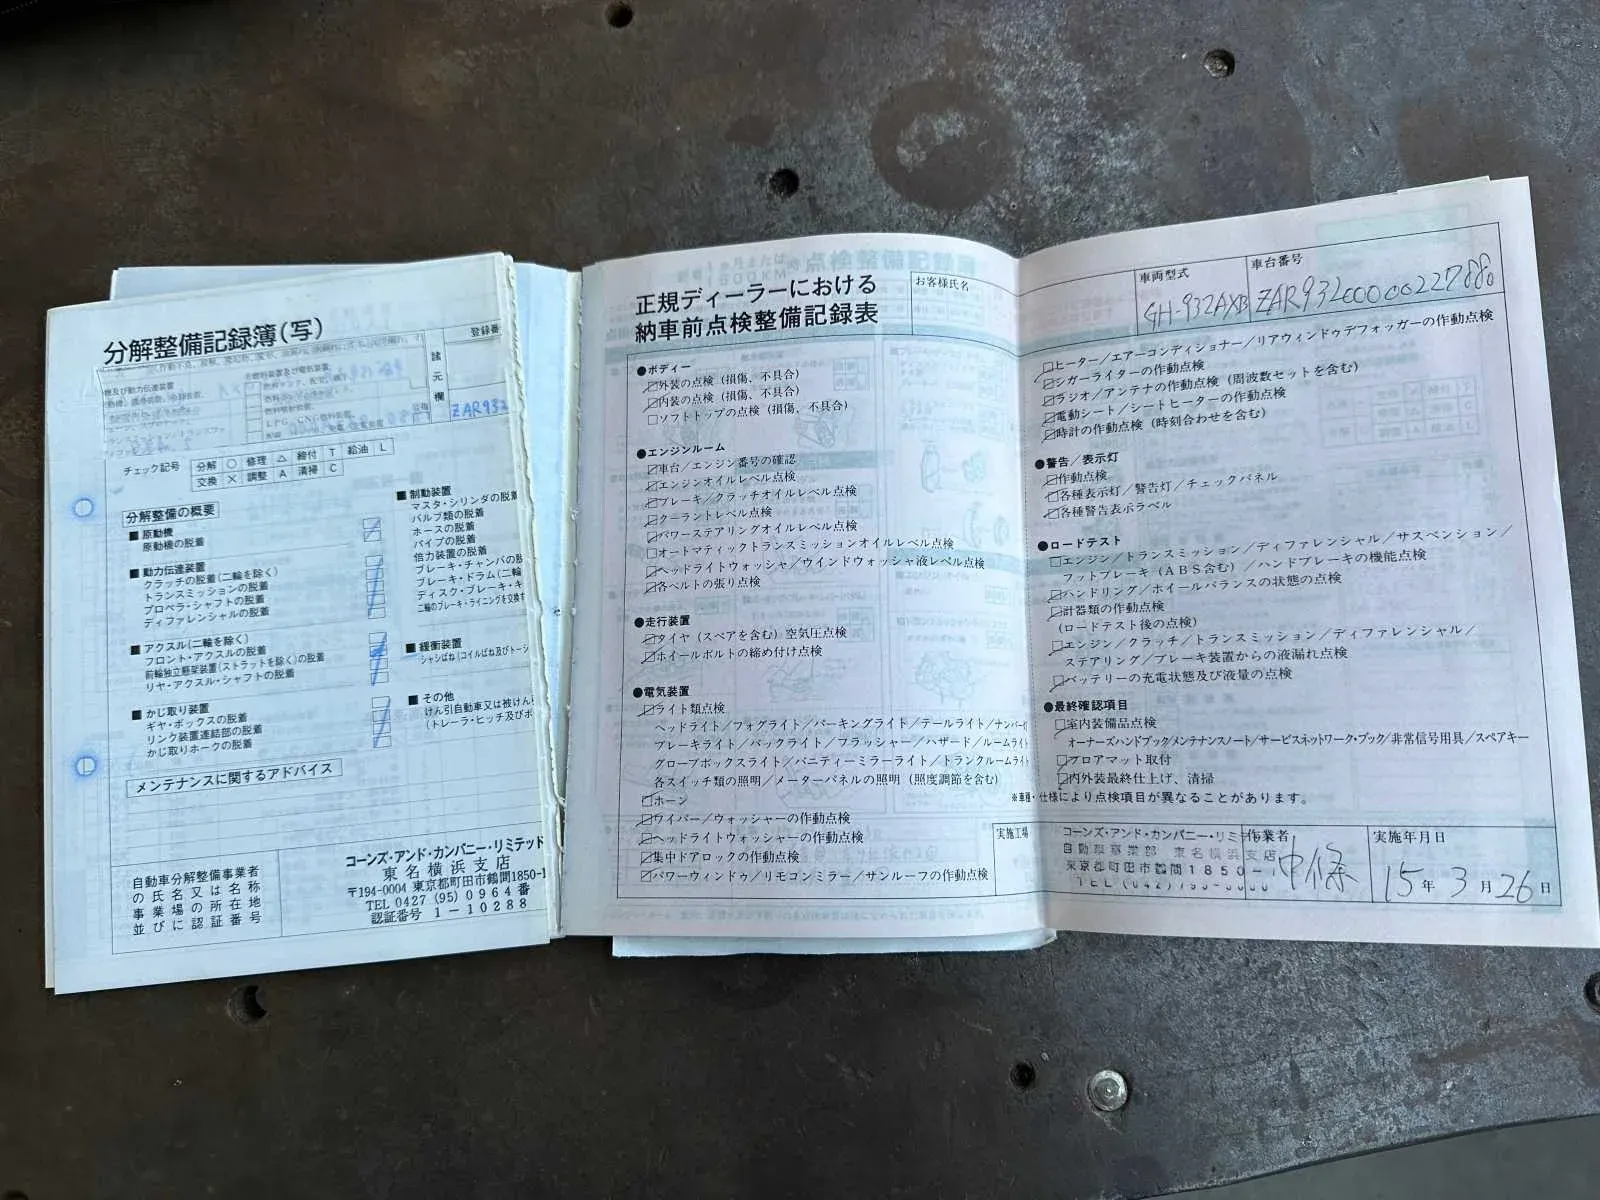 分解整備記録簿(写)
登録番
諸元欄
ZAR932
チェック記号
分解 ○ 修理 △ 締付 T 給油 L
交換 × 調整 A 清掃 C
分解整備の概要
■ 原動機
原動機の脱着
■ 動力伝達装置
クラッチの脱着(二輪を除く)
トランスミッションの脱着
プロペラ・シャフトの脱着
ディファレンシャルの脱着
■ アクスル(二輪を除く)
フロント・アクスルの脱着
前輪独立懸架装置(ストラットを除く)の脱着
リヤ・アクスル・シャフトの脱着
■ かじ取り装置
ギヤ・ボックスの脱着
リンク装置連結部の脱着
かじ取りホークの脱着
■ 制動装置
マスタ・シリンダの脱着
バルブ類の脱着
ホースの脱着
パイプの脱着
倍力装置の脱着
ブレーキ・チャンバの脱
ブレーキ・ドラム(二輪
ディスク・ブレーキ・キ
二輪のブレーキ・ライニングを交換す
■ 緩衝装置
シャシばね(コイルばね及びトーシ
■ その他
けん引自動車又は被けん引
(トレーラ・ヒッチ及びボ
メンテナンスに関するアドバイス
自動車分解整備事業者
の氏名又は名称
事業場の所在地
並びに認証番号
コーンズ・アンド・カンパニー・リミテッド
東名横浜支店
〒194-0004 東京都町田市鶴間1850-1
TEL 0427 (95) 0964番
認証番号 1-10288
正規ディーラーにおける
納車前点検整備記録表
お客様氏名
車両型式
GH-932AXB
車台番号
●ボディー
外装の点検(損傷、不具合)
内装の点検(損傷、不具合)
ソフトトップの点検(損傷、不具合)
●エンジンルーム
車台/エンジン番号の確認
エンジンオイルレベル点検
ブレーキ/クラッチオイルレベル点検
クーラントレベル点検
パワーステアリングオイルレベル点検
オートマティックトランスミッションオイルレベル点検
ヘッドライトウォッシャ/ウインドウォッシャ液レベル点検
各ベルトの張り点検
●走行装置
タイヤ(スペアを含む)空気圧点検
ホイールボルトの締め付け点検
●電気装置
ライト類点検
ヘッドライト/フォグライト/パーキングライト/テールライト/ナンバー灯
ブレーキライト/バックライト/フラッシャー/ハザード/ルームライト
グローブボックスライト/バニティーミラーライト/トランクルームライト
各スイッチ類の照明/メーターパネルの照明(照度調節を含む)
ホーン
ワイパー/ウォッシャーの作動点検
ヘッドライトウォッシャーの作動点検
集中ドアロックの作動点検
パワーウィンドウ/リモコンミラー/サンルーフの作動点検
ヒーター/エアーコンディショナー/リアウィンドゥデフォッガーの作動点検
シガーライターの作動点検
ラジオ/アンテナの作動点検(周波数セットを含む)
電動シート/シートヒーターの作動点検
時計の作動点検(時刻合わせを含む)
●警告/表示灯
作動点検
各種表示灯/警告灯/チェックパネル
各種警告表示ラベル
●ロードテスト
エンジン/トランスミッション/ディファレンシャル/サスペンション/
フットブレーキ(ABS含む)/ハンドブレーキの機能点検
ハンドリング/ホイールバランスの状態の点検
計器類の作動点検
(ロードテスト後の点検)
エンジン/クラッチ/トランスミッション/ディファレンシャル/
ステアリング/ブレーキ装置からの液漏れ点検
バッテリーの充電状態及び液量の点検
●最終確認項目
室内装備品点検
オーナーズハンドブック/メンテナンスノート/サービスネットワーク・ブック/非常信号用具/スペアキー
フロアマット取付
内外装最終仕上げ、清掃
※車種・仕様により点検項目が異なることがあります。
実施工場
コーンズ・アンド・カンパニー・リミ
自動車事業部 東名横浜支店
東京都町田市鶴間1850-1
作業者
中條
実施年月日
15年 3月 26日